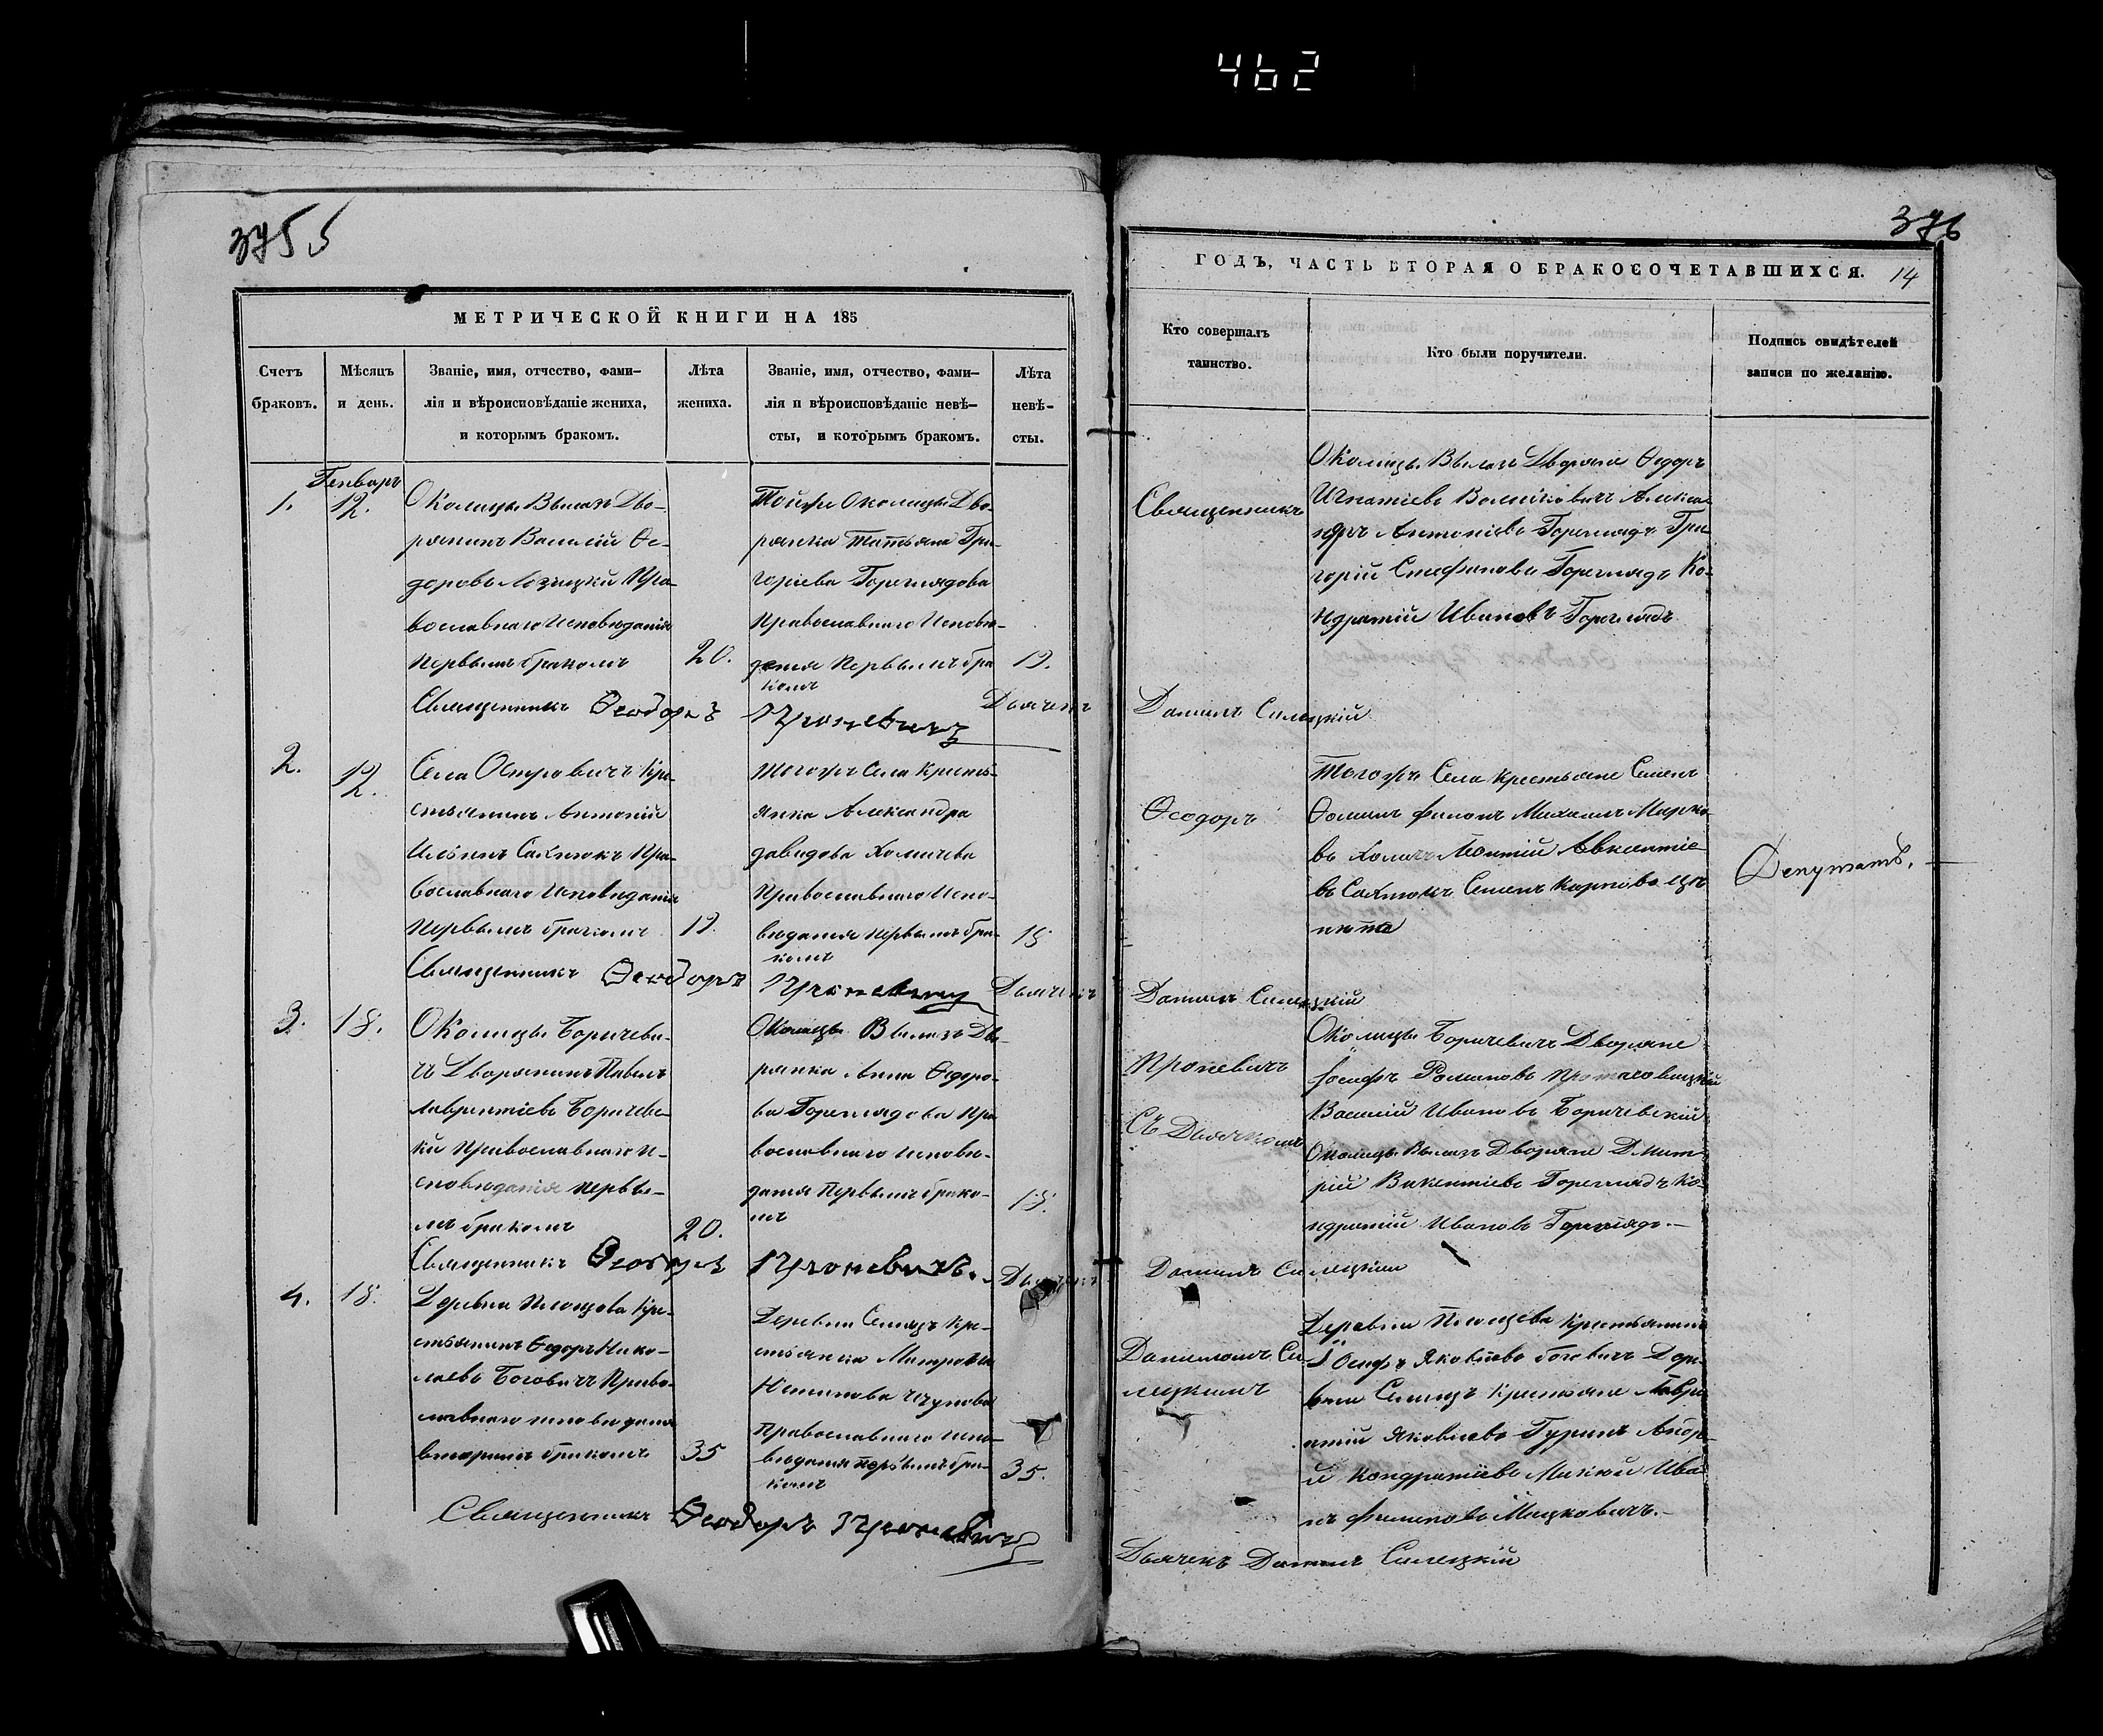 462
3755
МЕТРИЧЕСКОЙ КНИГИ НА 185
Счетъ браковъ.
Мѣсяцъ и день.
Званіе, имя, отчество, фами-
лія и вѣроисповѣданіе жениха,
и которымъ бракомъ.
Лѣта
жениха.
Званіе, имя, отчество, фами-
лія и вѣроисповѣданіе невѣ-
сты, и которымъ бракомъ.
Лѣта
невѣ-
сты.
Генварь
1.
12.
Околицы Вылазъ Дво-
рянинъ Василій Ѳе-
доровъ Лозицкій Пра-
вославнаго Исповѣданія
первымъ бракомъ
20.
Тойже Околицы Дво-
рянка Татьяна Гри-
горіева Гореглядова
Православнаго Исповѣ-
данія первымъ бра
комъ
19.
Священникъ Ѳеодоръ Проневичъ
Дьячекъ
2.
12.
Села Островичъ Кре-
стьянинъ Антоній
Ильинъ Сахнюкъ Пра-
вославнаго Исповѣданія
первымъ бракомъ
19.
тогожъ Села Кресть-
янка Александра
Давидова Хомичева
Православнаго Испо-
вѣданія первымъ бра-
комъ
18
Священникъ Ѳеодоръ Проневичъ
Дьячекъ
3.
18.
Околицы Боричеви-
чъ Дворянинъ Павелъ
Лаврентіевъ Боричевс-
кій Православнаго И-
сповѣданія первы-
мъ бракомъ
20.
Околицы Вылазъ Дво-
рянка Анна Ѳедоро-
ва Гореглядова Пра
вославнаго исповѣ-
данія первымъ брако-
мъ
18.
Священникъ Ѳеодоръ Проневичъ.
Дьячекъ
4.
18.
Деревни Плещева Кре-
стьянинъ Ѳедоръ Нико-
лаевъ Боговичъ Право-
славнаго исповѣданія
вторымъ бракомъ
35
Деревни Семецъ Кре-
стьянка
Православнаго испо-
вѣданія первымъ бра-
комъ
35.
Священникъ Ѳеодоръ Проневичъ
376
ГОДЪ, ЧАСТЬ ВТОРАЯ О БРАКОСОЧЕТАВШИХСЯ.
14
Кто совершалъ
таинство.
Кто были поручители.
Подпись свидѣтелей
записи по желанію.
Священникъ
Околицы Вылазъ Дворяне Ѳедоръ
Игнатіевъ Алекса-
ндръ Антоніевъ Гореглядъ Гри-
горій Стефановъ Гореглядъ Ко-
ндратій Ивановъ Гореглядъ
Даніилъ Силецкій
Ѳеодоръ
Тогожъ Села крестьяне Семенъ
Михаилъ Марко-
въ Хомичъ Леонтій Авксентіе-
въ Сахнюкъ Семенъ Карповъ
Депутатъ.
Даніилъ Силецкій
Проневичъ
Околицы Боричевичъ Дворяне
Іосифъ Романовъ Протасовицкій
Василій Ивановъ Боричевскій
Съ Дьячкомъ
Околицы Вылазъ Дворяне Дмит-
рій Викентіевъ Гореглядъ Ко-
ндратій Ивановъ Гореглядъ.-
Даніилъ Силецкій
Даниломъ Си-
лецкимъ
Деревни Плещева Крестьянинъ
Іосифъ Яковлевъ Боговичъ Дере-
вни Семецъ Крестьяне Лавре-
нтій Яковлевъ Гуринъ Андре-
й Кондратіевъ Ива-
нъ Филиповъ Мицковичъ.-
Дьячекъ Даніилъ Силецкій